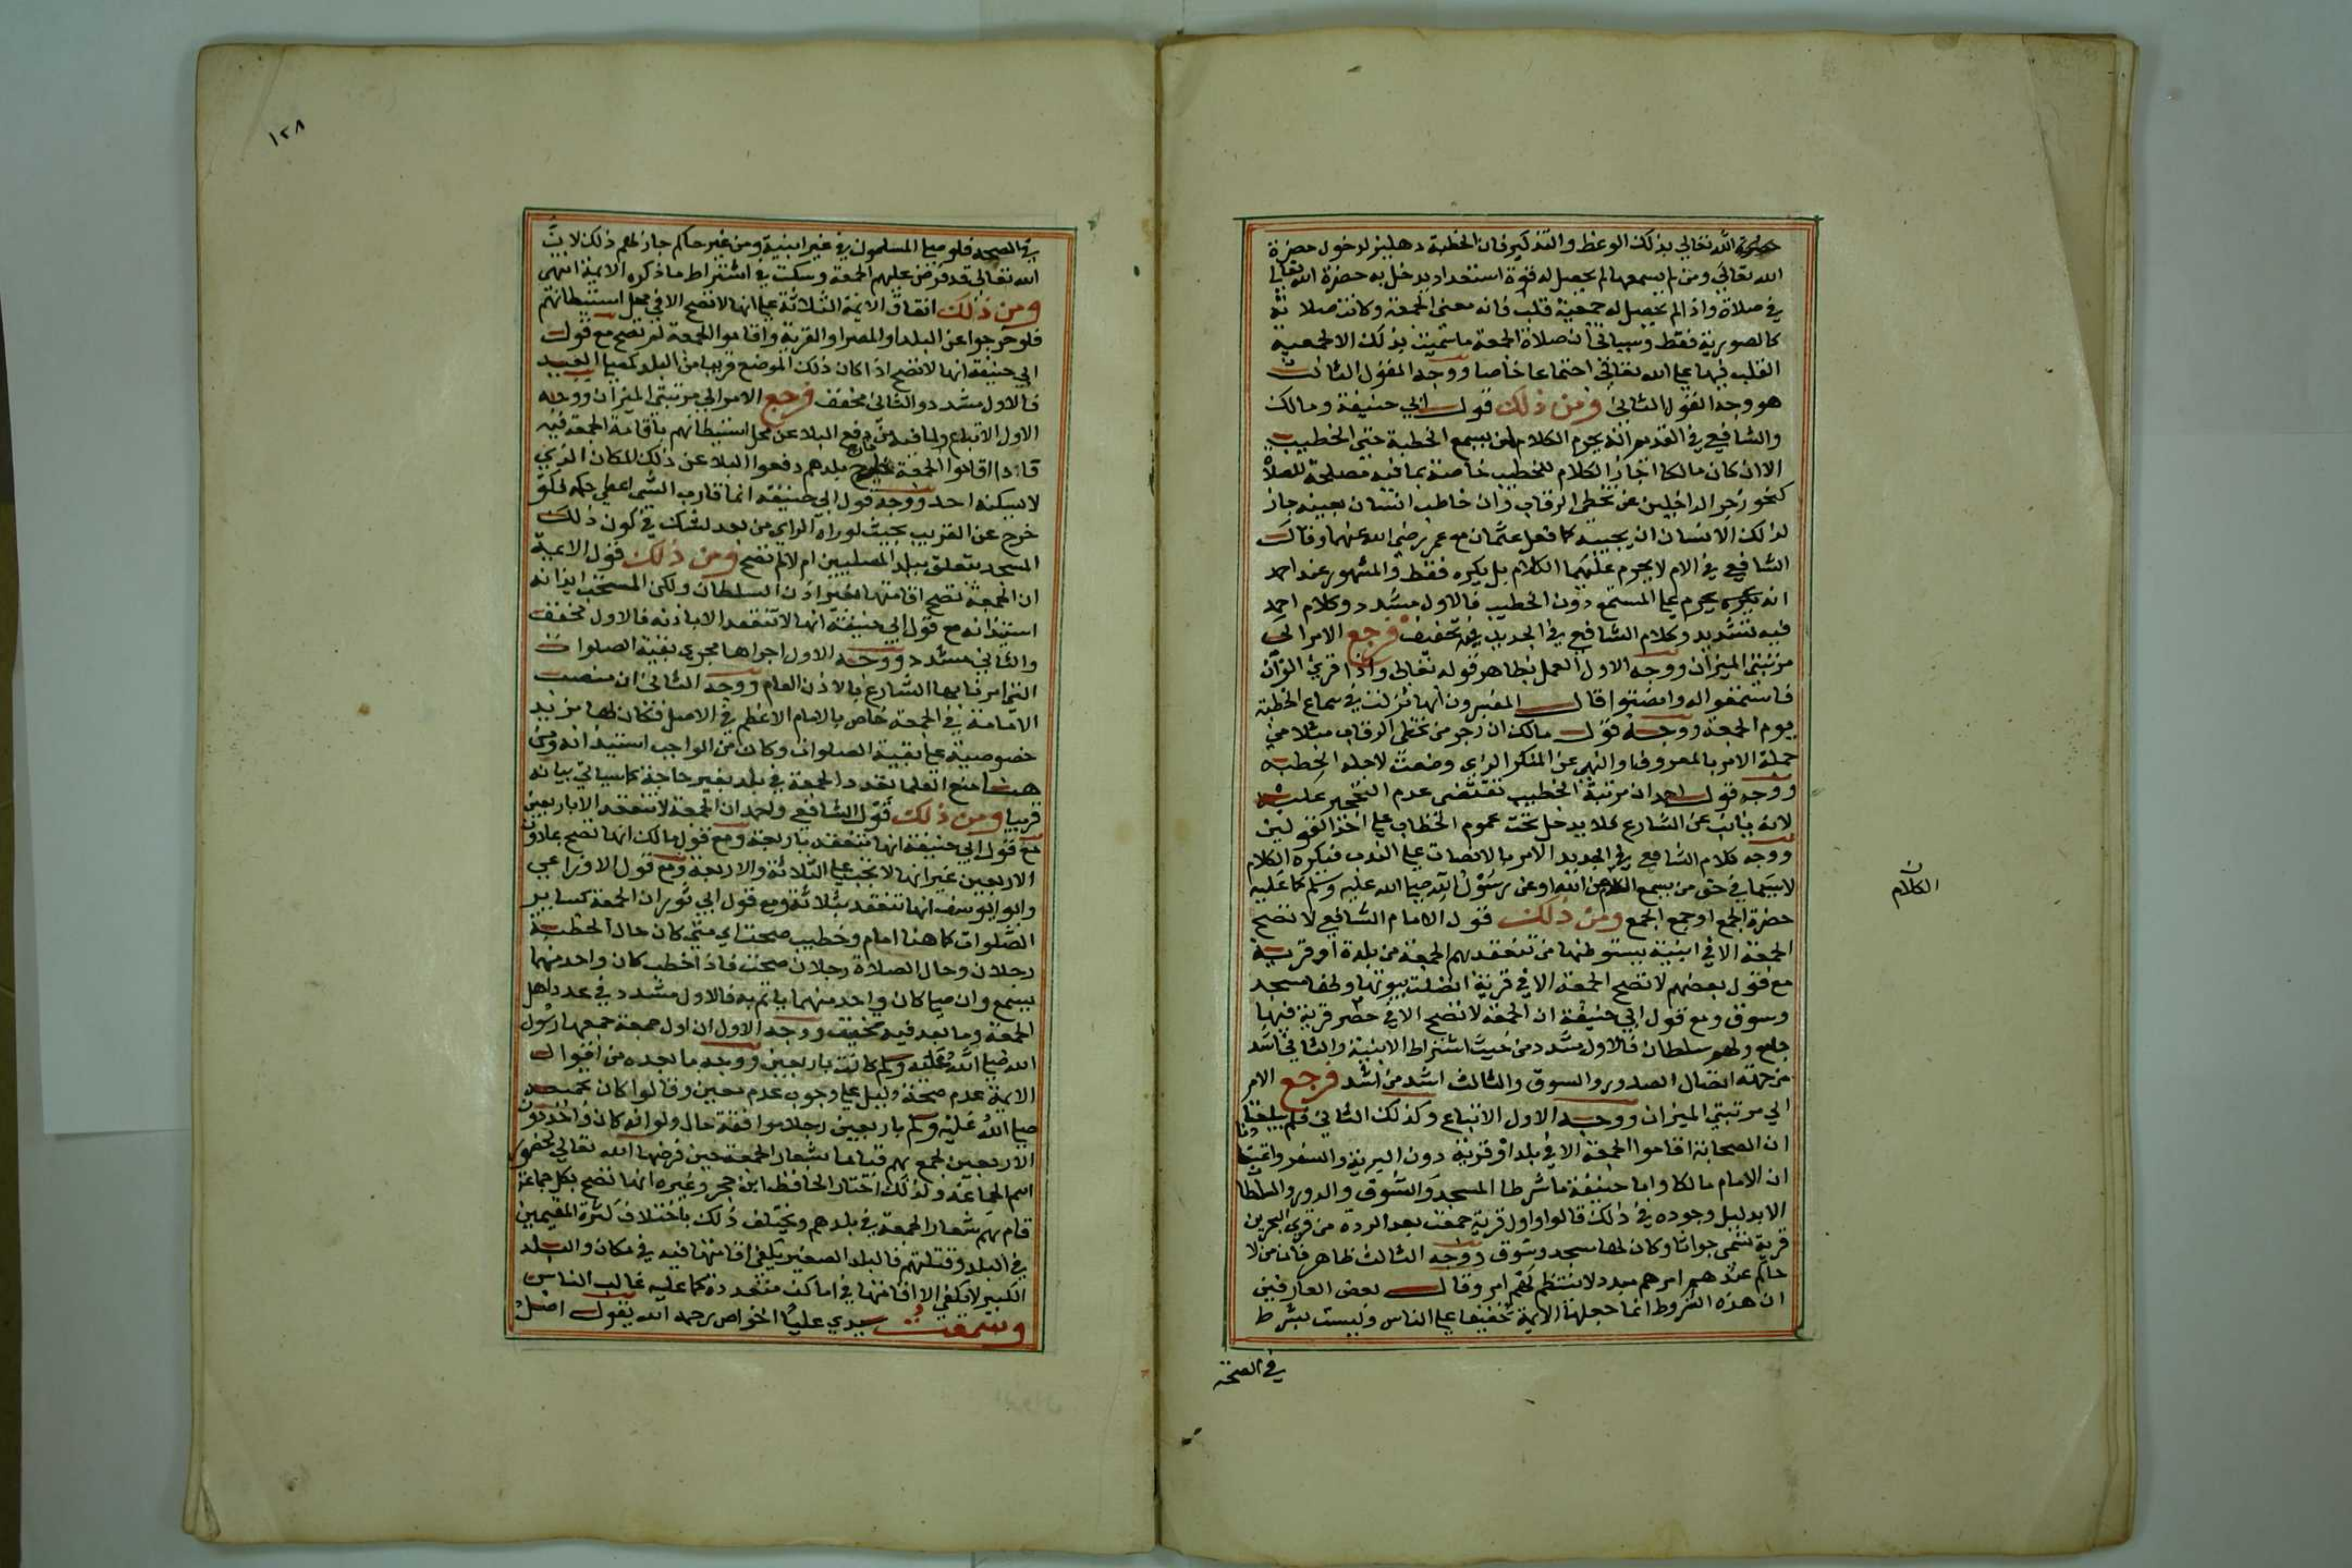 حضرة الله تعالى بذلك الوعظ والتذكير فان الخطبة دهليز لدخول حضرة
الله تعالى ومن لم يسمعها لم يحصل له قوة استعداد يدخل به حضرة الله تعالى
في صلاة واذا لم يحصل له جمعية قلب فاته معنى الجمعة وكانت صلاته
كالصورية فقط وسياتي ان صلاة الجمعة ما سميت بذلك الا لجمعية
القلب فيها على الله تعالى اجتماعا خاصا ووجه القول الثالث
هو وجه القول الثاني ومن ذلك قول ابي حنيفة ومالك
والشافعي في القديم انه يحرم الكلام لمن يسمع الخطبة حتى الخطيب
الا ان كان مالكا اجاز الكلام للخطيب خاصة بما فيه مصلحة للصلاة
كنحو زجر الداخلين عن تخطي الرقاب وان خاطب انسان بعينه جاز
لذلك الانسان ان يجيبه كما فعل عثمان مع عمر رضى الله عنهما وقال
الشافعي في الام لا يحرم عليهما الكلام بل يكره فقط والمشهور عند احمد
انه يحرم على المستمع دون الخطيب فالاول مشدد وكلام احمد
فيه تشديد وكلام الشافعي في الجديد فيه تخفيف فرجع الامر الى
مرتبتي الميزان ووجه الاول العمل بظاهر قوله تعالى واذا قرئ القرآن
فاستمعوا له وانصتوا قال المفسرون انها نزلت في سماع الخطبة
يوم الجمعة ووجه قول مالك ان زجر من تخطى الرقاب مثلا من
جملة الامر بالمعروف والنهي عن المنكر الذي وضعت لاجله الخطبة
ووجه قول احمد ان مرتبة الخطيب تقتضى عدم التحجير عليه
لانه نائب عن الشارع فلا يدخل تحت عموم الخطاب على احد القولين
ووجه كلام الشافعي في الجديد الامر بالانصات على الندب فيكره الكلام
لا سيما في حق من يسمع الكلام عن الله او عن رسول الله صلى الله عليه وسلم كما عليه
الكلام ن
حضرة الجمع او جمع الجمع ومن ذلك قول الامام الشافعي لا تصح
الجمعة الا في ابنية يستوطنها من تنعقد بهم الجمعة من بلدة او قرية
مع قول بعضهم لا تصح الجمعة الا في قرية اتصلت بيوتها ولها مسجد
وسوق ومع قول ابي حنيفة ان الجمعة لا تصح الا في مصر قرية فيها
جامع ولهم سلطان فالاول مشدد من حيث اشتراط الابنية والثاني اشد
من جهة اتصال الصدور والسوق والثالث اشد من اشد فرجع الامر
الى مرتبتي الميزان ووجه الاول الاتباع وكذلك الثاني فلم يبلغنا
ان الصحابة اقاموا الجمعة الا في بلد او قرية دون البرية والسفر
ان الامام مالكا وابا حنيفة ما شرطا المسجد والسوق والدور والسلطان
الا بدليل وجوده في ذلك قالوا واول قرية جمعت بعد الردة من قرى البحرين
قرية تسمى جواثا وكان لها مسجد وسوق ووجه الثالث ظاهر فان من لا
حاكم عندهم امرهم مبدد لا ينتظم لهم امر وقال بعض العارفين
ان هذه الشروط انما جعلها الايمة تخفيفا على الناس وليست بشرط
في الصحة
١٢٨
في الصحة فلو صلى المسلمون في غير ابنية ومن غير حاكم جاز لهم ذلك لان
الله تعالى قد فرض عليهم الجمعة وسكت في اشتراط ما ذكره الايمة انتهى
ومن ذلك اتفاق الايمة الثلاثة على انها لا تصح الا في محل استيطانهم
فلو خرجوا عن البلد او المصر او القرية واقاموا الجمعة لم تصح مع قول
ابي حنيفة انها لا تصح اذا كان ذلك الموضع قريبا من البلد كمصلى العيد
فالاول مشدد والثاني مخفف فرجع الامر الى مرتبتي الميزان ووجه
الاول الاتباع ولما فيه من دفع البلاء عن محل استيطانهم باقامة الجمعة فيه
فاذا اقاموا الجمعة خارج بلدهم دفعوا البلاء عن ذلك المكان الذي
لا يسكنه احد ووجه قول ابي حنيفة انما قارب الشي اعطي حكمه فلو
خرج عن القريب بحيث لو رآه الرائي من بعد لشك في كون ذلك
المسجد يتعلق ببلد المصليين ام لا لم تصح ومن ذلك قول الايمة
ان الجمعة تصح اقامتها بغير اذن السلطان ولكن المستحب
استيذانه مع قول ابي حنيفة انها لا تنعقد الا باذنه فالاول مخفف
والثاني مشدد ووجه الاول اجراها مجرى بقية الصلوات
التي امرنا بها الشارع بالاذن العام ووجه الثاني ان منصب
الامامة في الجمعة خاص بالامام الاعظم في الاصل فكان لها مزيد
خصوصية على بقية الصلوات وكان من الواجب استيذانه ومن
هنا منع العلما تعدد الجمعة في بلد بغير حاجة كما سياتي بيانه
قريبا ومن ذلك قول الشافعي واحمد ان الجمعة لا تنعقد الا باربعين
مع قول ابي حنيفة انها تنعقد باربعة ومع قول مالك انها تصح بما دون
الاربعين غير انها لا تجب على الثلاثة والاربعة ومع قول الاوزاعي
وابو يوسف انها تنعقد بثلاثة ومع قول ابي ثور ان الجمعة كساير
الصلوات كاهنا امام وخطيب صحت اي متى كان حال الخطبة
رجلان وحال الصلاة رجلان صحت فاذا خطب كان واحد منهما
يسمع وان صلى كان واحد منهما ياتم به فالاول مشدد في عدد اهل
الجمعة وما بعد فيه تخفيف ووجه الاول ان اول جمعة جمعها رسول
الله صلى الله عليه وسلم كانت باربعين ووجه ما بعده من اقوال
الايمة عدم صحة دليل على وجوب عدم معين وقالوا كان تجميعه
صلى الله عليه وسلم باربعين رجلا موافقة حال ولو انه كان وجد دون
الاربعين لجمع بهم قياما بشعار الجمعة حين فرضها الله تعالى لحضور
اسم الجماعة ولذلك اختار الحافظ ابن حجر وغيره انها تصح بكل جماعة
قام بهم شعار الجمعة في بلدهم ويختلف ذلك باختلاف كثرة المقيمين
في البلد وقلتهم فالبلد الصغير يكفي اقامتها فيه في مكان والبلد
الكبير لا يكفي الا اقامتها في اماكن متعددة كما عليه غالب الناس
وسمعت سيدي عليا الخواص رحمه الله يقول اصل